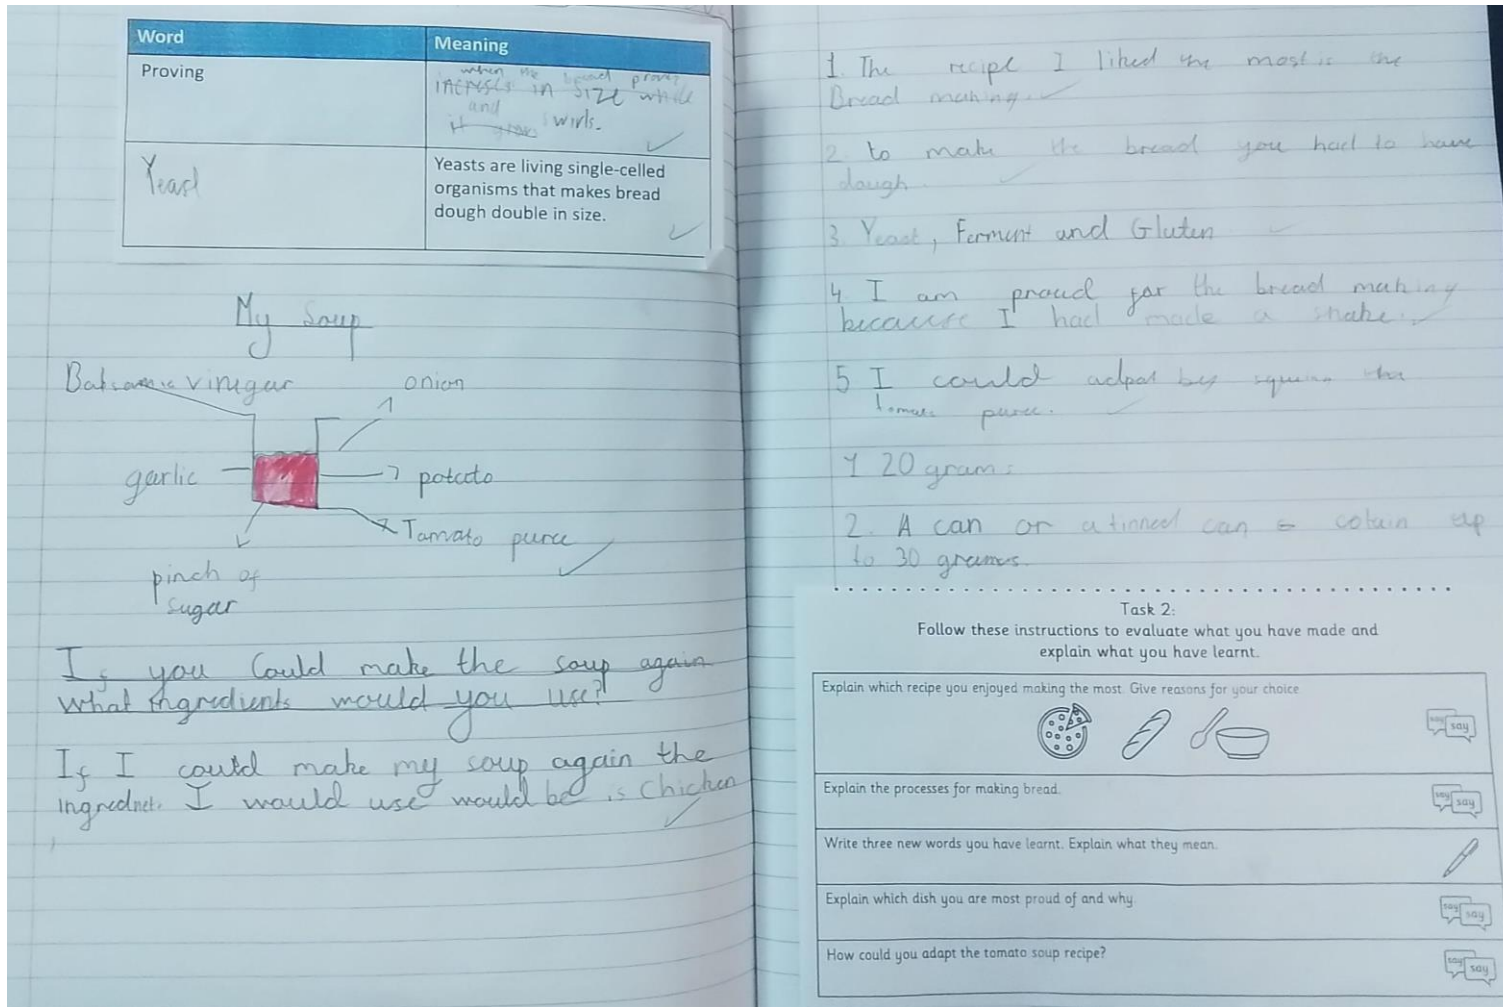 Word
Meaning
Proving
when the bread proves
increses in size while
and
it swirls.
Yeast
Yeasts are living single-celled
organisms that makes bread
dough double in size.
My Soup
Balsamic vinegar
onion
garlic
potato
Tomato puree
pinch of
sugar
If you Could make the soup again
what ingredients would you use?
If I could make my soup again the
ingrednet. I would use would be is Chicken
1. The recipe I liked the most is the
Bread making.
2 to make the bread you had to have
dough.
3. Yeast, Ferment and Gluten
4 I am proud for the bread making
because I had made a snake.
5 I could adpat by the
puree.
1 20 grams
2. A can or a tinned can cotain up
to 30 grames.
Task 2:
Follow these instructions to evaluate what you have made and
explain what you have learnt.
Explain which recipe you enjoyed making the most. Give reasons for your choice.
say say
Explain the processes for making bread.
say say
Write three new words you have learnt. Explain what they mean.
Explain which dish you are most proud of and why.
say say
How could you adapt the tomato soup recipe?
say say